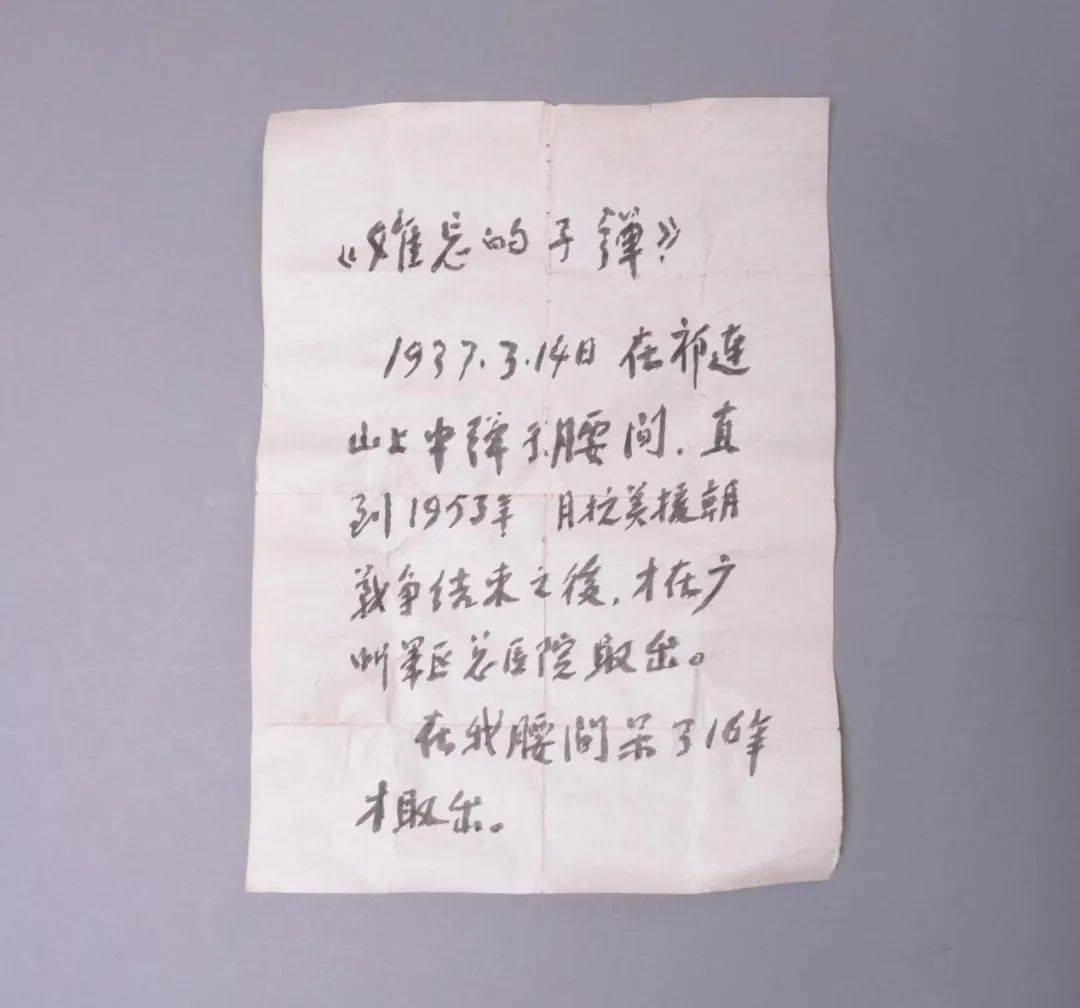 《难忘的子彈》
1937.3.14日在祁連
山上中彈于腰间，直
到1953年 月抗美援朝
戰争结束之後，才在广
州軍区总医院取出。
在我腰间呆了16年
才取出。